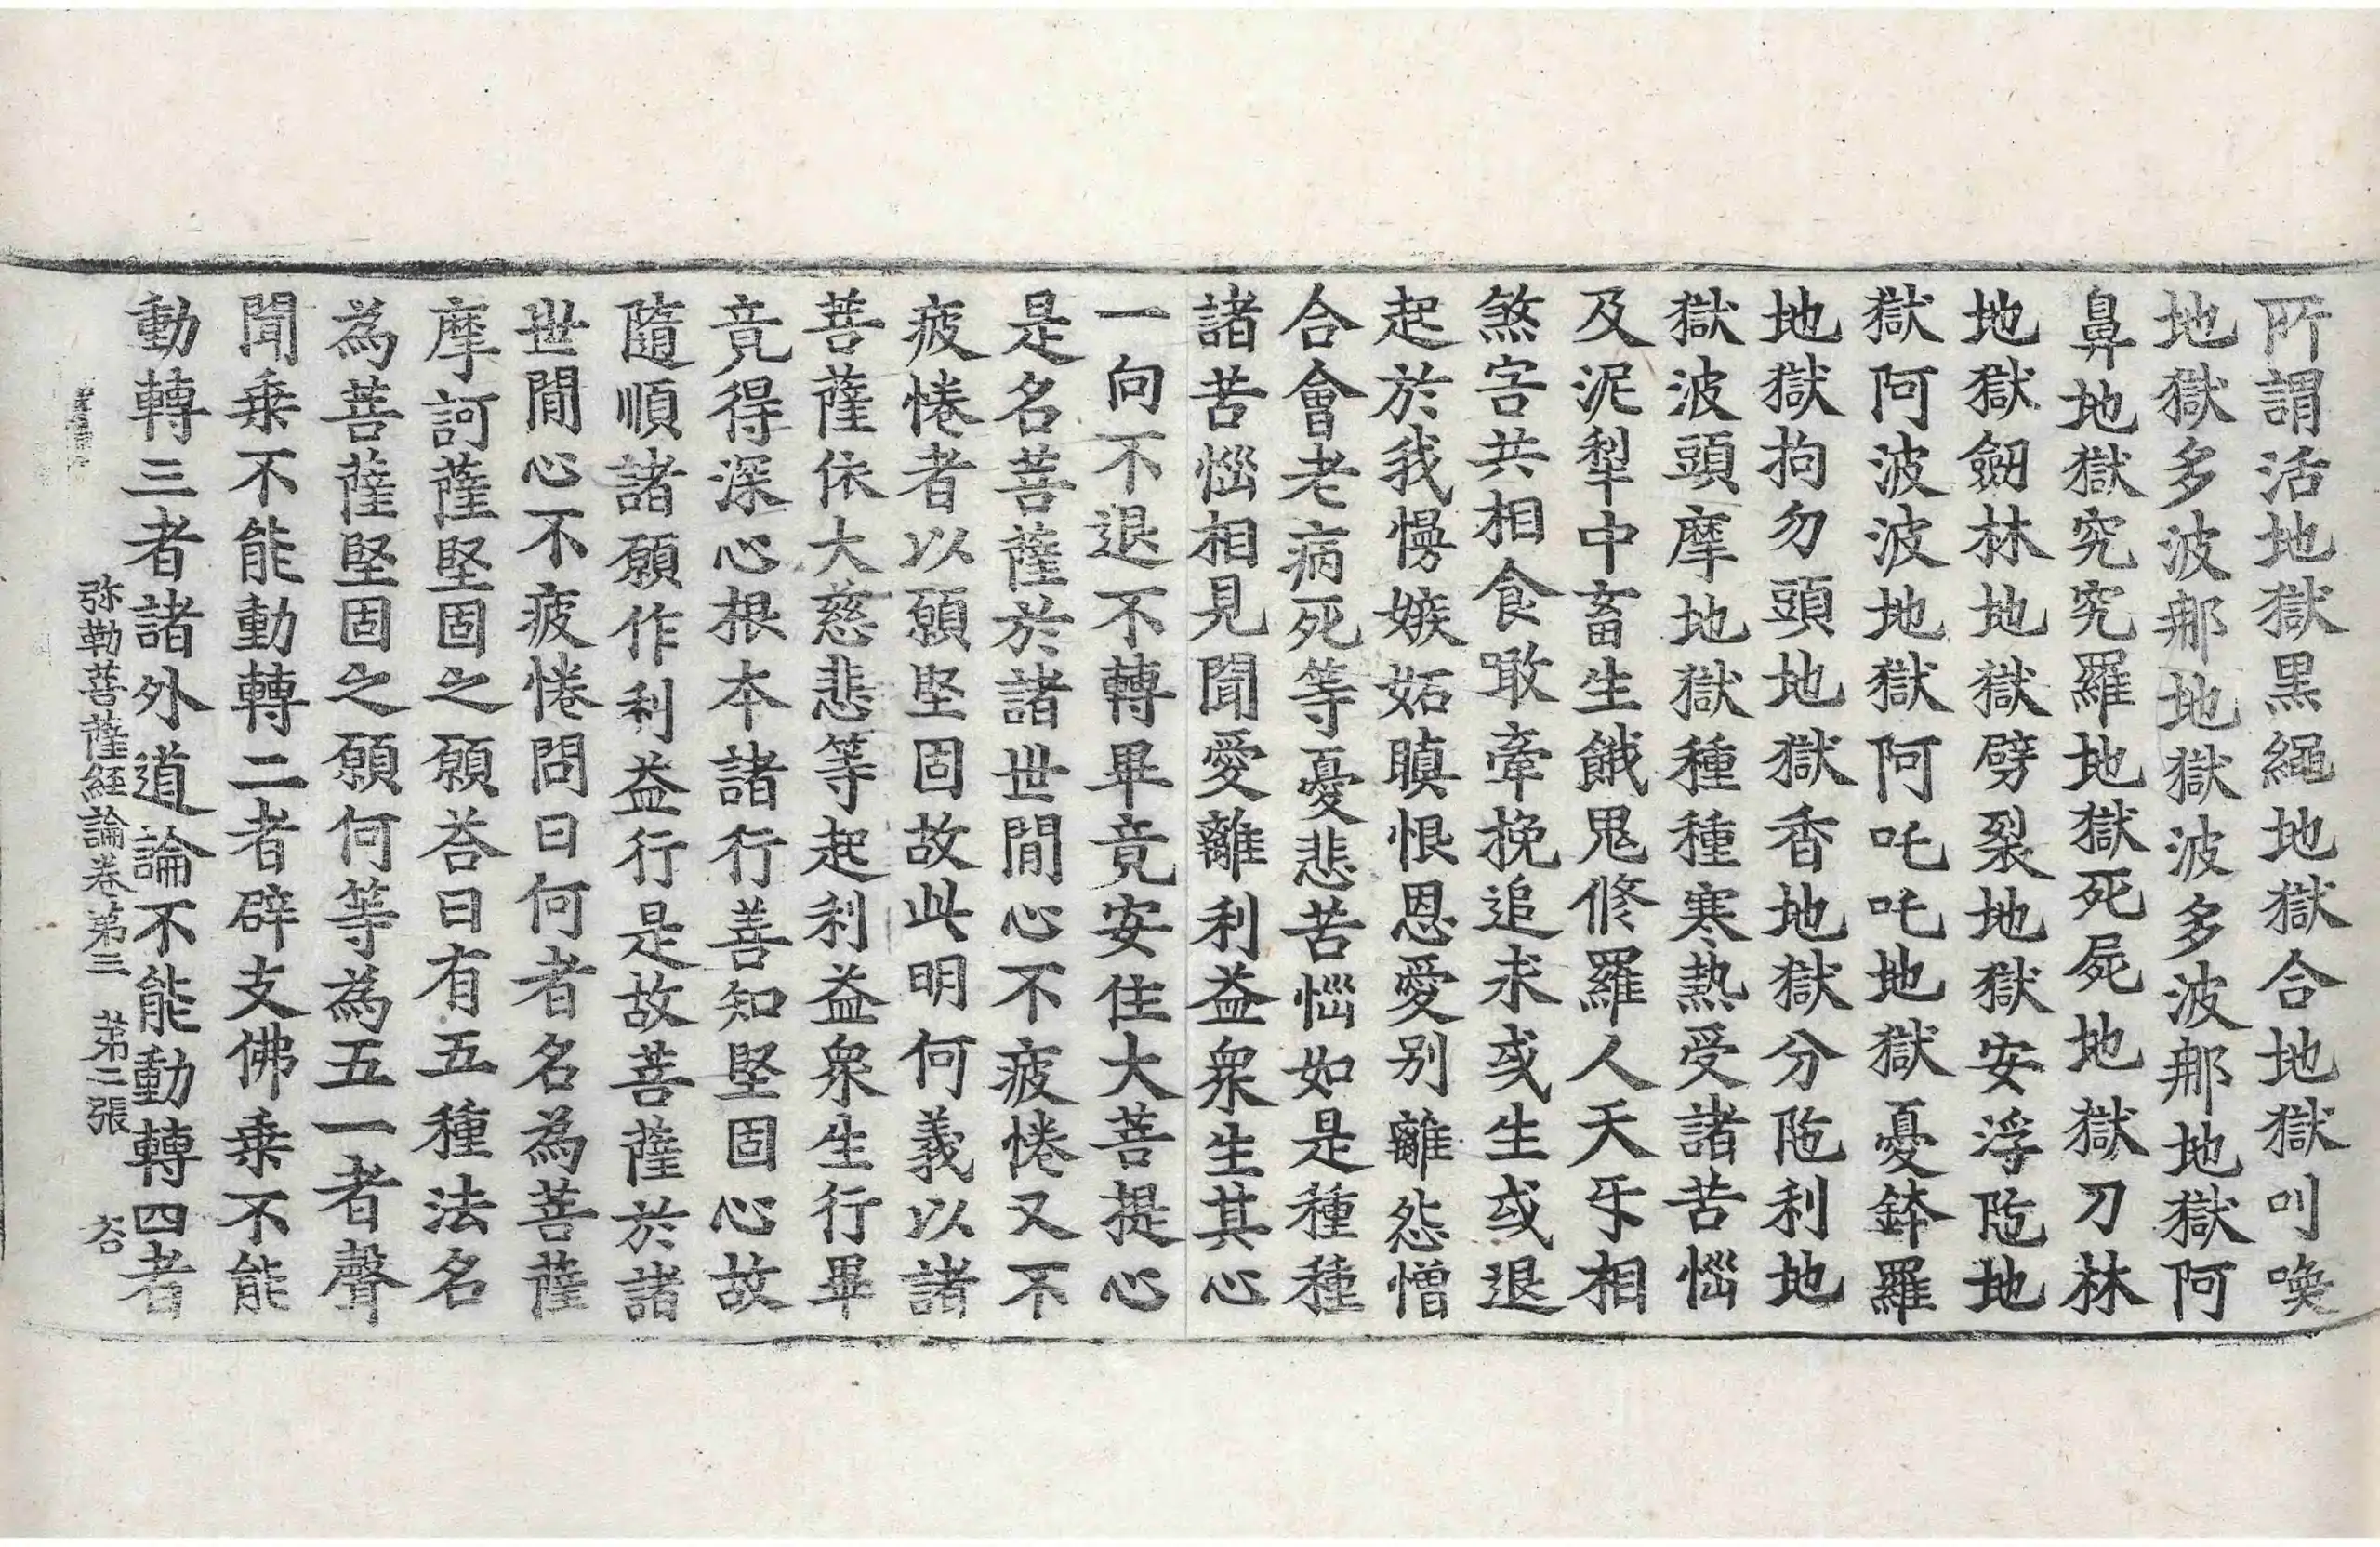 所謂活地獄黑繩地獄合地獄叫喚
地獄多波那地獄波多波那地獄阿
鼻地獄究究羅地獄死屍地獄刀林
地獄劒林地獄劈裂地獄安浮陁地
獄阿波波地獄阿吒吒地獄憂鉢羅
地獄拘勿頭地獄香地獄分陁利地
獄波頭摩地獄種種寒熱受諸苦惱
及泥犁中畜生餓鬼修羅人天牙相
煞害共相食噉牽挽追求或生或退
起於我慢嫉妬瞋恨恩愛別離怨憎
合會老病死等憂悲苦惱如是種種
諸苦惱相見聞愛離利益衆生其心
一向不退不轉畢竟安住大菩提心
是名菩薩於諸世間心不疲惓又不
疲惓者以願堅固故此明何義以諸
菩薩依大慈悲等起利益衆生行畢
竟得深心根本諸行善知堅固心故
隨順諸願作利益行是故菩薩於諸
世間心不疲惓問曰何者名為菩薩
摩訶薩堅固之願荅曰有五種法名
為菩薩堅固之願何等為五一者聲
聞乗不能動轉二者辟支佛乗不能
動轉三者諸外道論不能動轉四者
弥勒菩薩経論卷第三 第二張